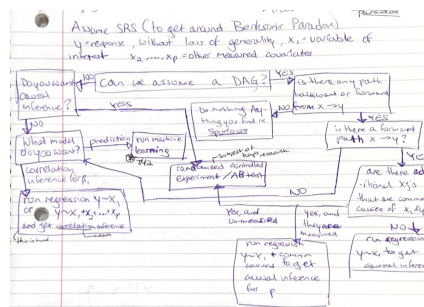 Assume SRS (to get around Berkson's Paradox)
y=response, without loss of generality, x₁=variable of
interest x₂,...,xₚ=other measured covariates
Do you want
causal
inference?
NO
Can we assume a DAG?
YES
is there any path
backward or forward
from x→y
NO
Do nothing. Any
thing you find is
spurious
YES
is there a forward
path x→y?
YES
NO
What model
do you want?
prediction
run machine
learning
randomized controlled
experiment /AB test
NO
correlation
inference for β₁
run regression y~x₁
or y~x₁+x₂+...+xₚ
and get correlation inference
Yes, and
unmeasured
yes, and
they are
measured
are there ad
-itional xj's
that are common
causes of x₁,
NO
run regression
y~x₁ + common
causes to get
causal inference
for β
run regression
y~x₁ to get
causal inference